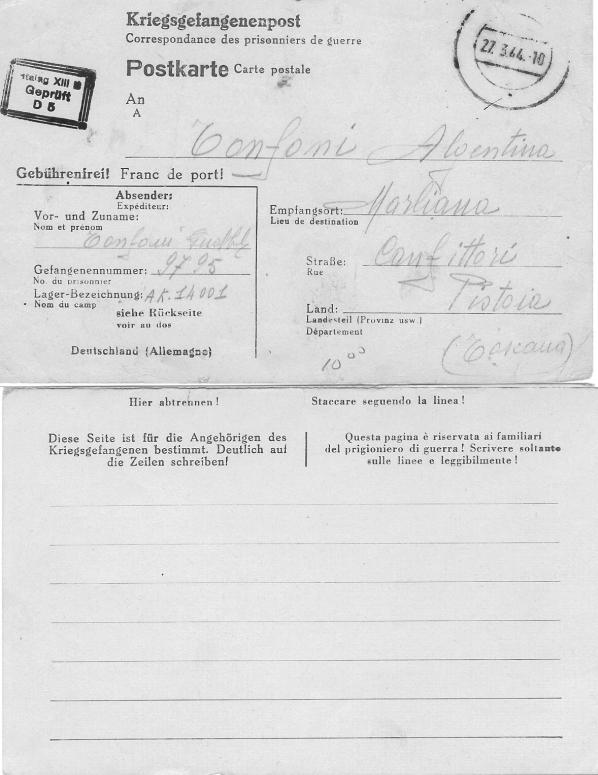 Kriegsgefangenenpost
Correspondance des prisonniers de guerre
Postkarte Carte postale
27.3.44.-10
Stalag XIII
Geprüft
D 5
An
A
Tonfoni Alventina
Gebührenfrei! Franc de port!
Absender:
Expéditeur:
Vor- und Zuname:
Nom et prénom
Tonfoni
Gefangenennummer: 9795
No. du prisonnier
Lager-Bezeichnung: AK. 14001
Nom du camp
siehe Rückseite
voir au dos
Deutschland (Allemagne)
Empfangsort: Marliana
Lieu de destination
Straße:
Rue
Pistoia
Land:
Landesteil (Provinz usw.)
Département
(Toscana)
10⁰⁰
Hier abtrennen! Staccare seguendo la linea!
Diese Seite ist für die Angehörigen des
Kriegsgefangenen bestimmt. Deutlich auf
die Zeilen schreiben!
Questa pagina è riservata ai familiari
del prigioniero di guerra! Scrivere soltanto
sulle linee e leggibilmente!